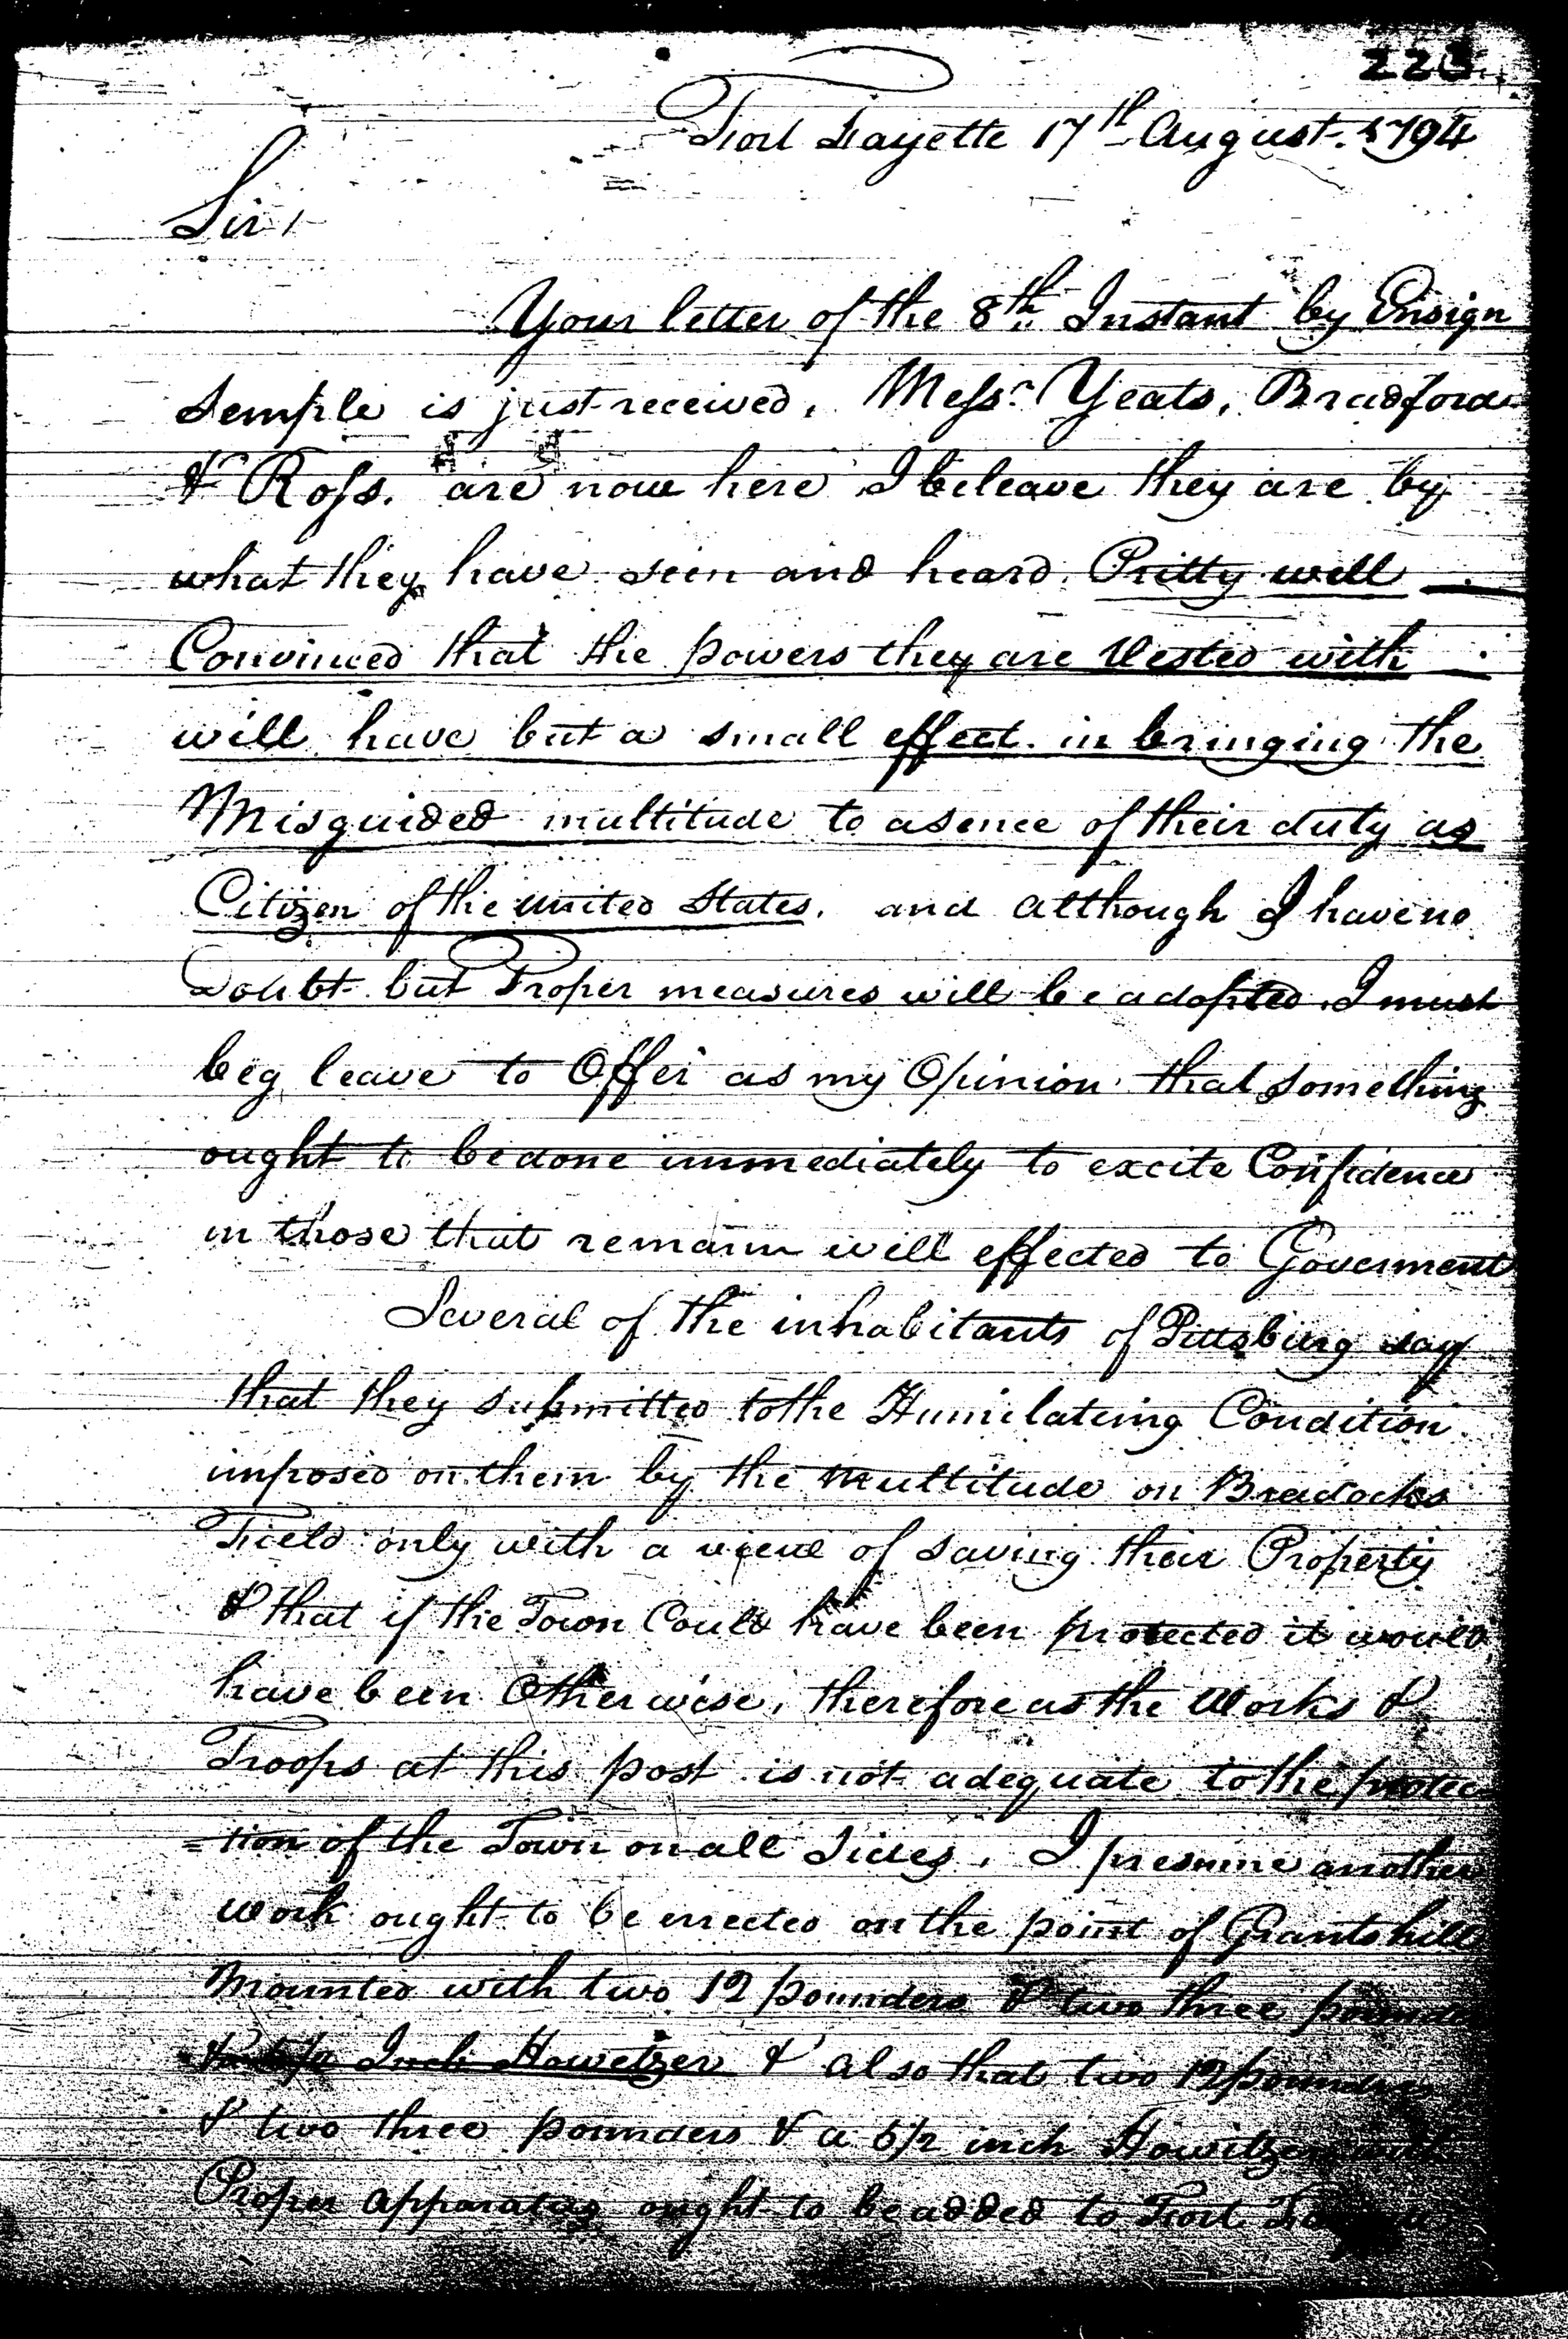 223
Fort Fayette 17th August. 1794
Sir /
Your letter of the 8th Instant by Ensign
Semple is just received. Messrs Yeats, Bradford
& Ross. are now here I beleave they are by
what they have seen and heard. Pritty well
Convinced that the powers they are Vested with
will have but a small effect in bringing the
Misguided multitude to a sence of their duty as
Citizen of the united States. and although I have no
Doubt but Proper measures will be adopted. I must
beg leave to Offer as my Opinion that something
ought to be done immediately to excite Confidence
in those that remain well effected to Goverment
Several of the inhabitants of Pittsburg say
that they submitted to the Humilating Condition
imposed on them by the Multitude on Bradocks
Field only with a view of saving their Property
& that if the Town Could have been protected it would
have been Otherwise, therefore as the Works &
Troops at this post is not adequate to the protec
=tion of the Town on all Sides. I presume another
work ought to be errected on the point of Grants hill
Mounted with two 12 pounders & two three pounders
Inch Howetzer & also that two 12 pounders
& two three pounders & a 5½ inch Howitzer with
Proper apparatus ought to be added to Fort Fayette